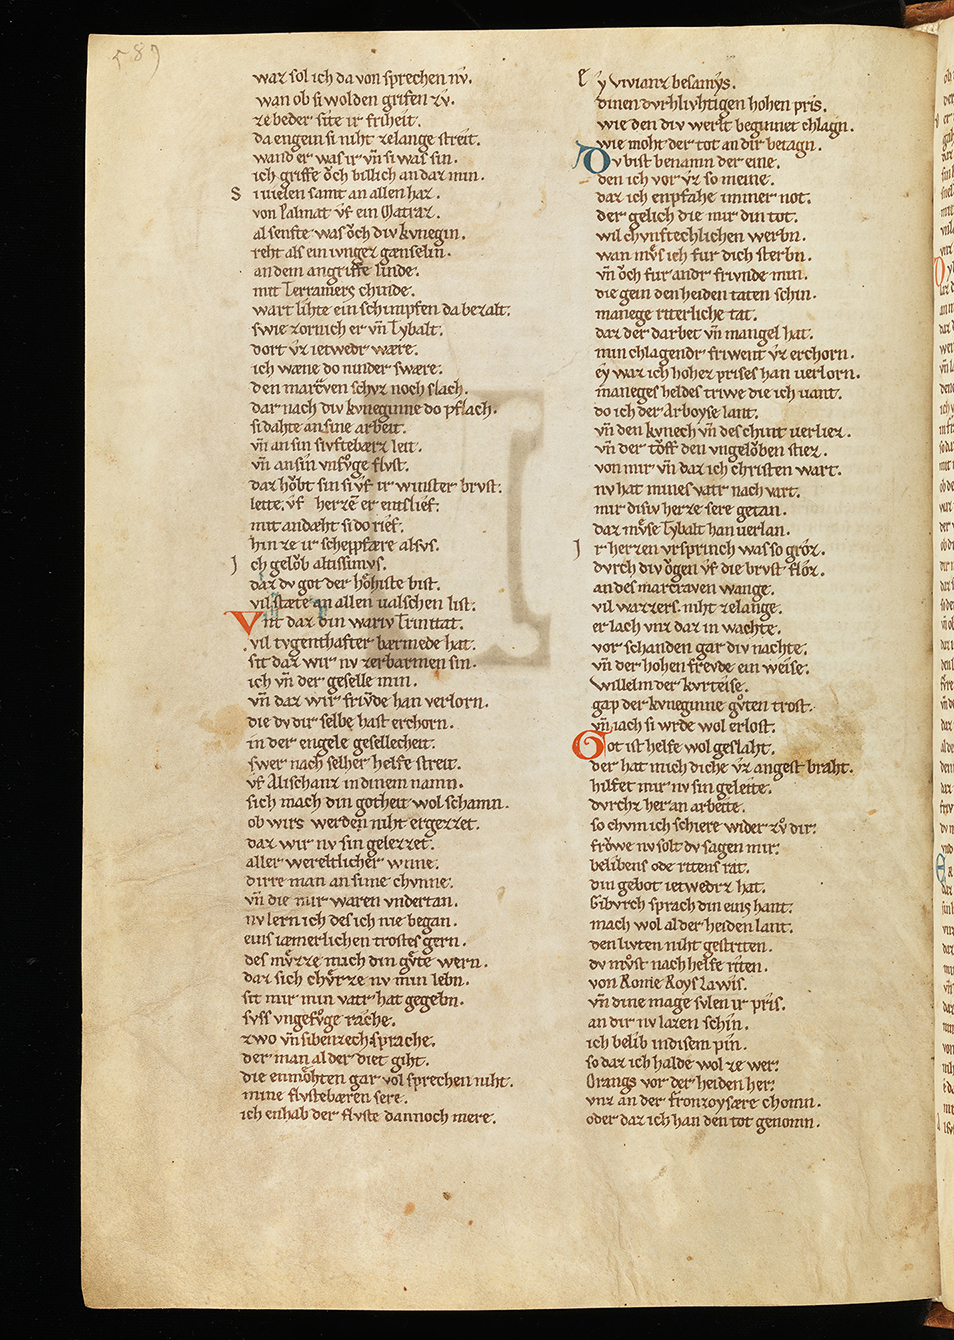 589
waz sol ich da von sprechen nv.
wan ob si wolden grifen zv̊.
ze beder site ir friheit.
da engein si niht zelange streit.
wand er was ir vn̄ si was sin.
ich griffe ǒch billich an daz min.
S i vielen samt an allen haz.
von Palmat v̂f ein Matraz.
al senfte was ǒch div kvnegin.
reht als ein ivngez gænselin.
an dem angriffe linde.
mit Terramers chinde.
wart lihte ein schimpfen da bezalt.
swie zornich er vn̄ Tybalt.
dort v̂z ietwedr wære.
ich wæne do ninder swære.
den marcᷓven schvz noch slach.
dar nach div kvneginne do pflach.
si dahte an sine arbeit.
vn̄ an sin sivftebærz leit.
vn̄ an sin vnfv̊ge flvst.
daz hǒbt sin si v̂f ir winster brvst.
leite. v̂f herzē er entslief.
mit andæht si do rief.
hin ze ir schepfære alsvs.
I ch gelǒb altissimvs.
daz dv got der hôhiste bist.
vil stæte an allen valschen list.
Vnt daz din wariv Trinitat.
vil tvgenthafter bærmede hat.
sit daz wir nv zerbarmen sin.
ich vn̄ der geselle min.
vn̄ daz wir frivde han verlorn.
die dv dir selbe hast erchorn.
in der engele gesellecheit.
swer nach selher helfe streit.
v̂f Alischanz in dinem namn.
sich mach din gotheit wol schamn.
ob wirs werden niht ergezzet.
daz wir nv sin gelezzet.
aller wereltlicher winne.
dirre man an sime chvnne.
vn̄ die mir waren vndertan.
nv lern ich des ich nie began.
einis iæmerlichen trostes gern.
des mv̊zze mich din gv̊te wern.
daz sich chv̊rze nv min lebn.
sit mir min vatr hat gegebn.
svss vngefv̊ge rache.
zwo vn̄ sibenzech sprache.
der man al der diet giht.
die enmohten gar vol sprechen niht.
mine flvstebæren sere.
ich enhab der flvste dannoch mere.
e y vivianz besamys.
dinen dvrhlivhtigen hohen pris.
wie den div werlt beginnet chlagn.
wie moht der tot an dir betagn.
Dv bist benamn der eine.
den ich vor v̂z so meine.
daz ich enpfahe immer not.
der gelich die mir din tot.
wil chvnftechlichen werbn.
wan mv̊s ich fur dich sterbn.
vn̄ ǒch fur andr frivnde min.
die gein den heiden taten schin.
manege riterliche tat.
daz der darbet vn̄ mangel hat.
min chlagendr frivent v̂z erchorn.
ey waz ich hoher prises han verlorn.
maneges heldes triwe die ich vant.
do ich der Arboyse lant.
vn̄ den kvnech vn̄ des chint verliez.
vn̄ der tǒff den vngelǒben stiez.
von mir vn̄ daz ich christen wart.
nv hat mines vatr nach vart.
mir disiv herze sere getan.
daz mv̊se Tybalt han verlan.
I r herzen vrsprinch was so groz.
dvrch div ǒgen v̂f die brvst floz.
an des marcraven wange.
vil wazzers niht zelange.
er lach vnz daz in wachte.
vor schanden gar div nachte.
vn̄ der hohen frevde ein weise.
Willelm der kvrteise.
gap der kvneginne gv̊ten trost.
vn̄ iach si wrde wol erlost.
Got ist helfe wol geslaht.
der hat mich diche v̂z angest braht.
hilfet mir nv sin geleite.
dvrchz her an arbeite.
so chvm ich schiere wider zv̊ dir.
frǒwe nv solt dv sagen mir.
belibens ode ritens rat.
din gebot ietwedrz hat.
Gibvrch sprach din einis hant.
mach wol al der heiden lant.
den livten niht gestriten.
dv mv̊st nach helfe riten.
von Rome Roys Lawis.
vn̄ dine mage svlen ir pris.
an dir nv lazen schin.
ich belib in disem pin.
so daz ich halde wol ze wer.
Orangs vor der heiden her.
vnz an der franzoysære chomn.
oder daz ich han den tot genomn.